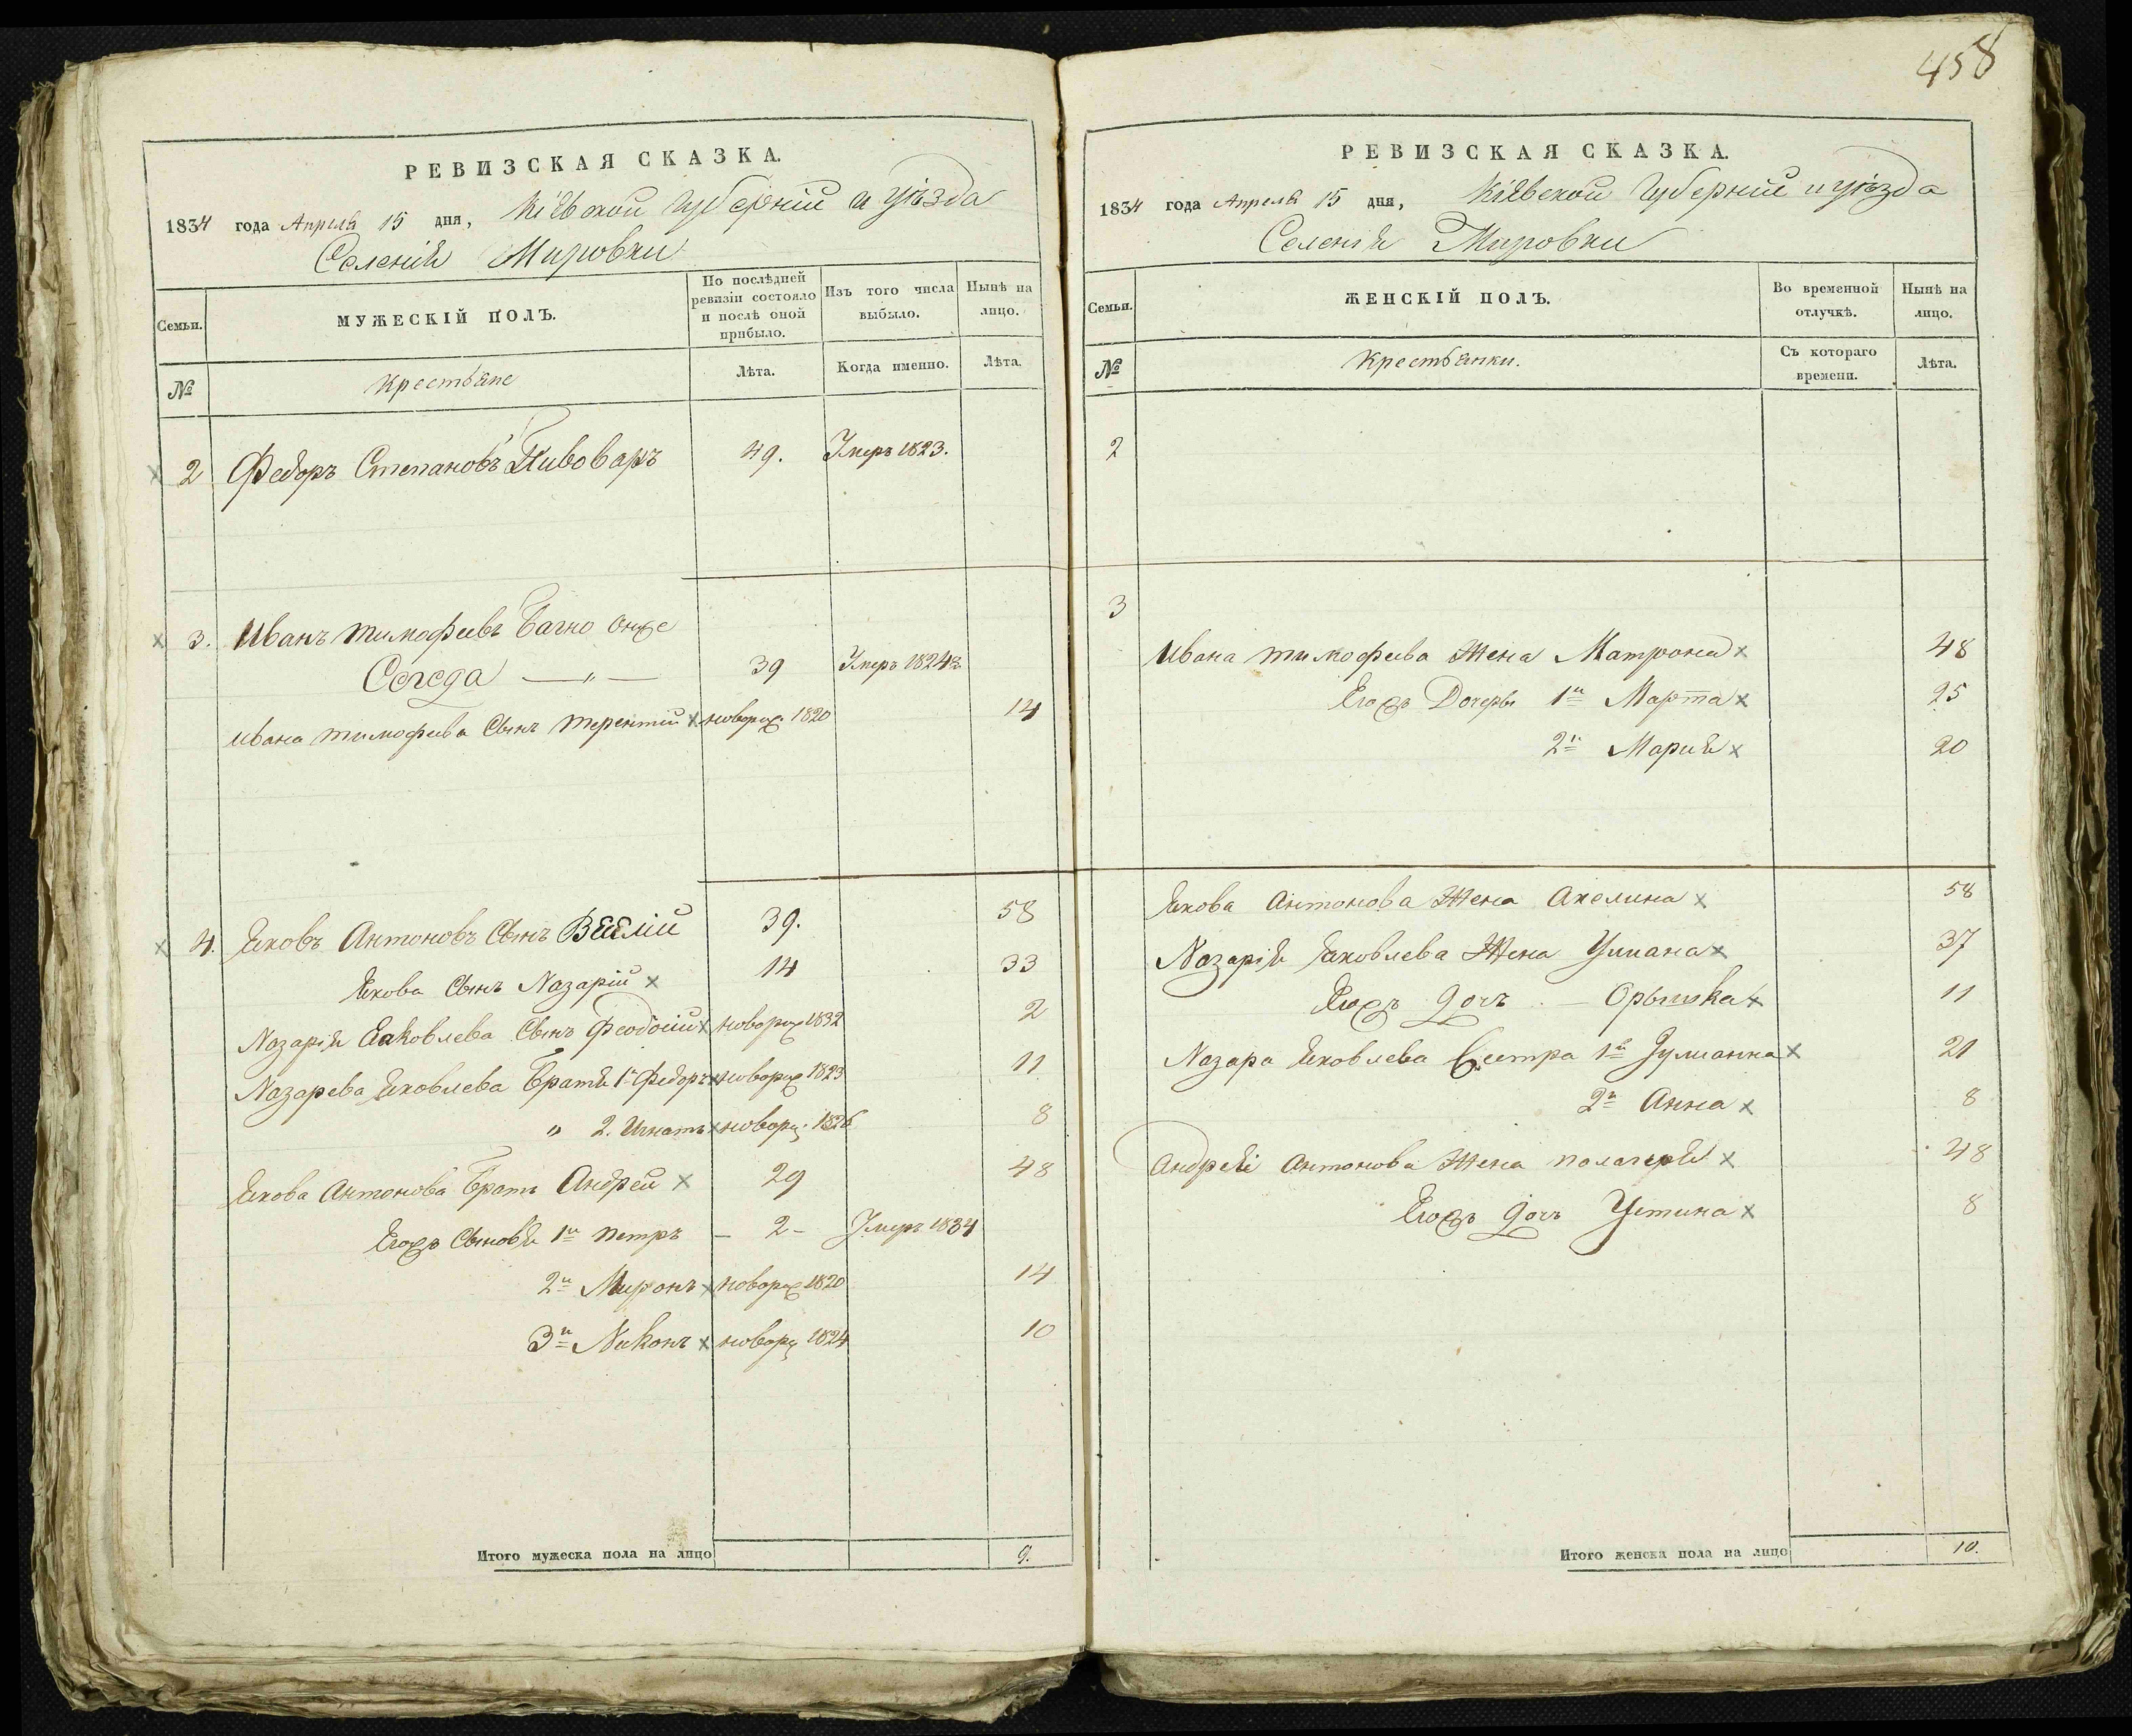 458
РЕВИЗСКАЯ СКАЗКА.
1834 года Апреля 15 дня, Кіевской Губерніи и уѣзда
Селенія Мировки
Семьи. МУЖЕСКІЙ ПОЛЪ. По послѣдней ревизіи состояло и послѣ оной прибыло. Изъ того числа выбыло. Нынѣ на лицо.
№ Крестьяне Лѣта. Когда именно. Лѣта.
2 Федоръ Степановъ Пивоваръ 49. Умеръ 1823.
3. Иванъ Тимофеевъ Багно онже
Сегеда —„— 39 Умеръ 1824
Ивана Тимофеева Сынъ Терентій новорож. 1820 14
4. Яковъ Антоновъ Сынъ Веселій 39. 58
Якова Сынъ Назарій 14 33
Назарія Яаковлева Сынъ Феодосій новорож 1832 2
Назарева Яковлева Братья 1й Федоръ новорож 1823 11
„ 2. Игнатъ новорож. 1826 8
Якова Антонова Братъ Андрей 29 48
Егожъ Сыновья 1й Петръ — 2 — Умеръ 1834
2й Миронъ новорож 1820 14
3й Никонъ новорож 1824 10
Итого мужеска пола на лицо 9.
РЕВИЗСКАЯ СКАЗКА.
1834 года Апреля 15 дня, Кіевской Губерніи и уѣзда
Селенія Мировки
Семьи. ЖЕНСКІЙ ПОЛЪ. Во временной отлучкѣ. Нынѣ на лицо.
№ Крестьянки. Съ котораго времени. Лѣта.
2
3
Ивана Тимофеева Жена Матрона 48
Егожъ Дочеры 1я Марта 25
2я Марія 20
Якова Антонова Жена Акелина 58
Назарія Яковлева Жена Уліана 37
Егожъ дочъ — Орышка 11
Назара Яковлева Сестра 1я Іуліанна 21
2я Анна 8
Андрея Антонова Жена Полагерія 48
Егожъ дочъ Устина 8
Итого женска пола на лицо 10.